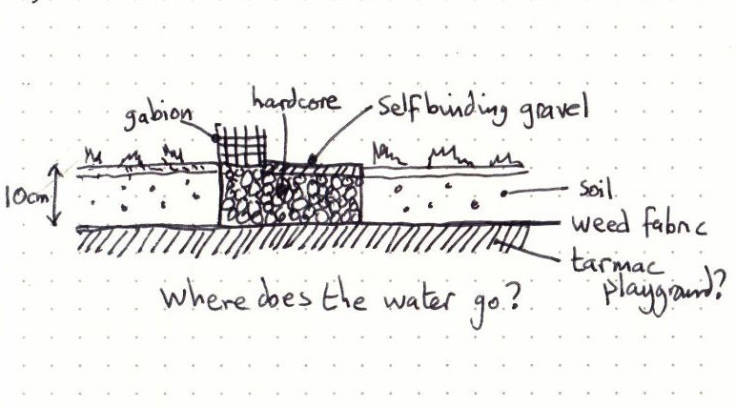 gabion
hardcore
Self binding gravel
10cm
soil
weed fabric
tarmac
playground?
Where does the water go?